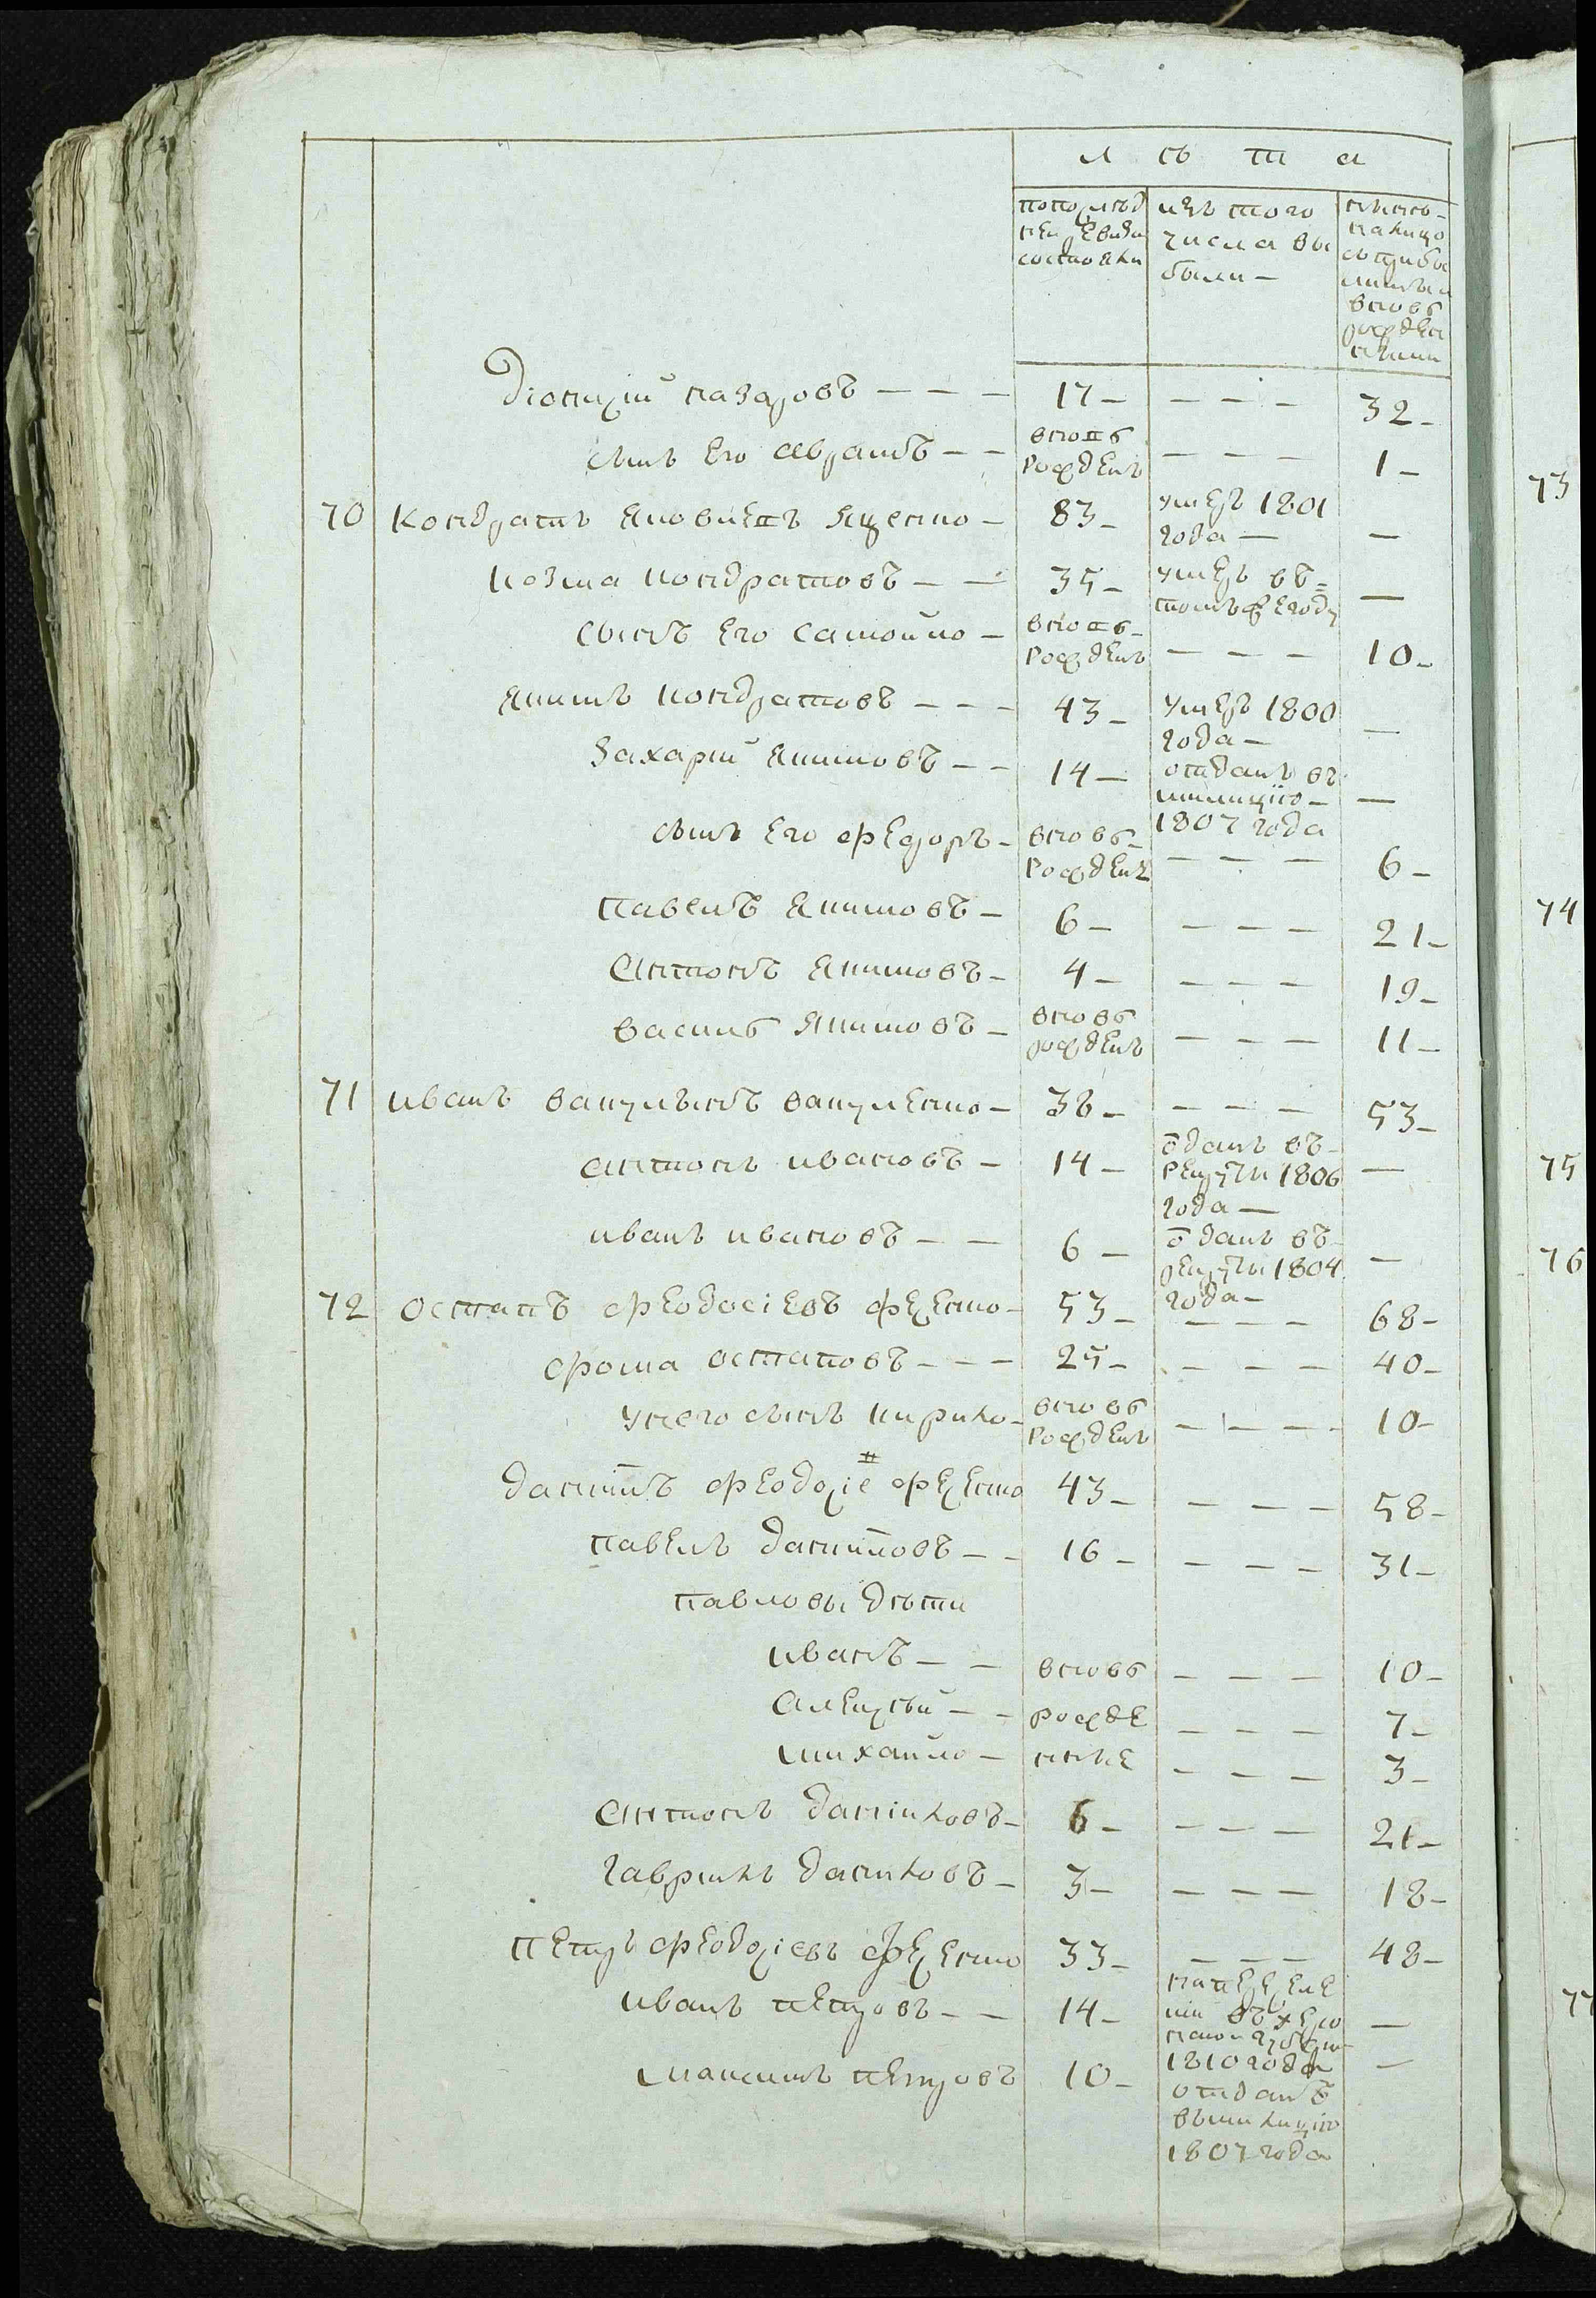 лѣта
попослѣд
ней ревизи
состояли
изъ того
числа вы
были –
нынѣ –
налицо
съ прибы
лыми и
вновь
рожден
ными
Діонисій Назаровъ – – – 17 – – – – 32 –
сынъ его Авраамъ – – вновь рожденъ – – – 1 –
70 Кондратъ Яковлевъ Яценко – 83 – умеръ 1801 года – –
Козма Кондратовъ – – 35 – умеръ въ = томъ же году –
сынъ его Самойло – вновь – рожденъ – – – 10 –
Якимъ Кондратовъ – – – 43 – умеръ 1800 года – –
Захарій Якимовъ – – 14 – отданъ въ милицію – 1807 года –
сынъ его Федоръ – вновь – рожденъ – – – 6 –
Павелъ Якимовъ – 6 – – – – 21 –
Антонъ Якимовъ – 4 – – – – 19 –
Василь Якимовъ – вновь рожденъ – – – 11 –
71 Иванъ Вакулынъ Вакуленко – 38 – – – – 53 –
Антонъ Ивановъ – 14 – оданъ въ – рекруты 1806 года – –
Иванъ Ивановъ – – 6 – оданъ въ – рекруты 1804 года – –
72 Остапъ Феодосіевъ Фесенко – 53 – – – – 68 –
Фома Остаповъ – – – 25 – – – – 40 –
у него сынъ Кирило – вновь рожденъ – – – – 10 –
Данилъ Феодосіе Фесенко 43 – – – – 58 –
Павелъ Даниловъ – – 16 – – – – 31 –
Павловы дѣти
Иванъ – – вновь – – – 10 –
Алексѣй – – рожде – – – 7 –
Михайло – нные – – – 3 –
Антонъ Даніиловъ – 6 – – – – 21 –
Гаврилъ Даниловъ – 3 – – – – 18 –
Петръ Феодосіевъ Фесенко 33 – – – – 48 –
Иванъ Петровъ – – 14 – на переселе ніи въ Херсо 1810 года –
Максимъ Петровъ 10 – отданъ въ милицію 1807 года –
73
74
75
76
77